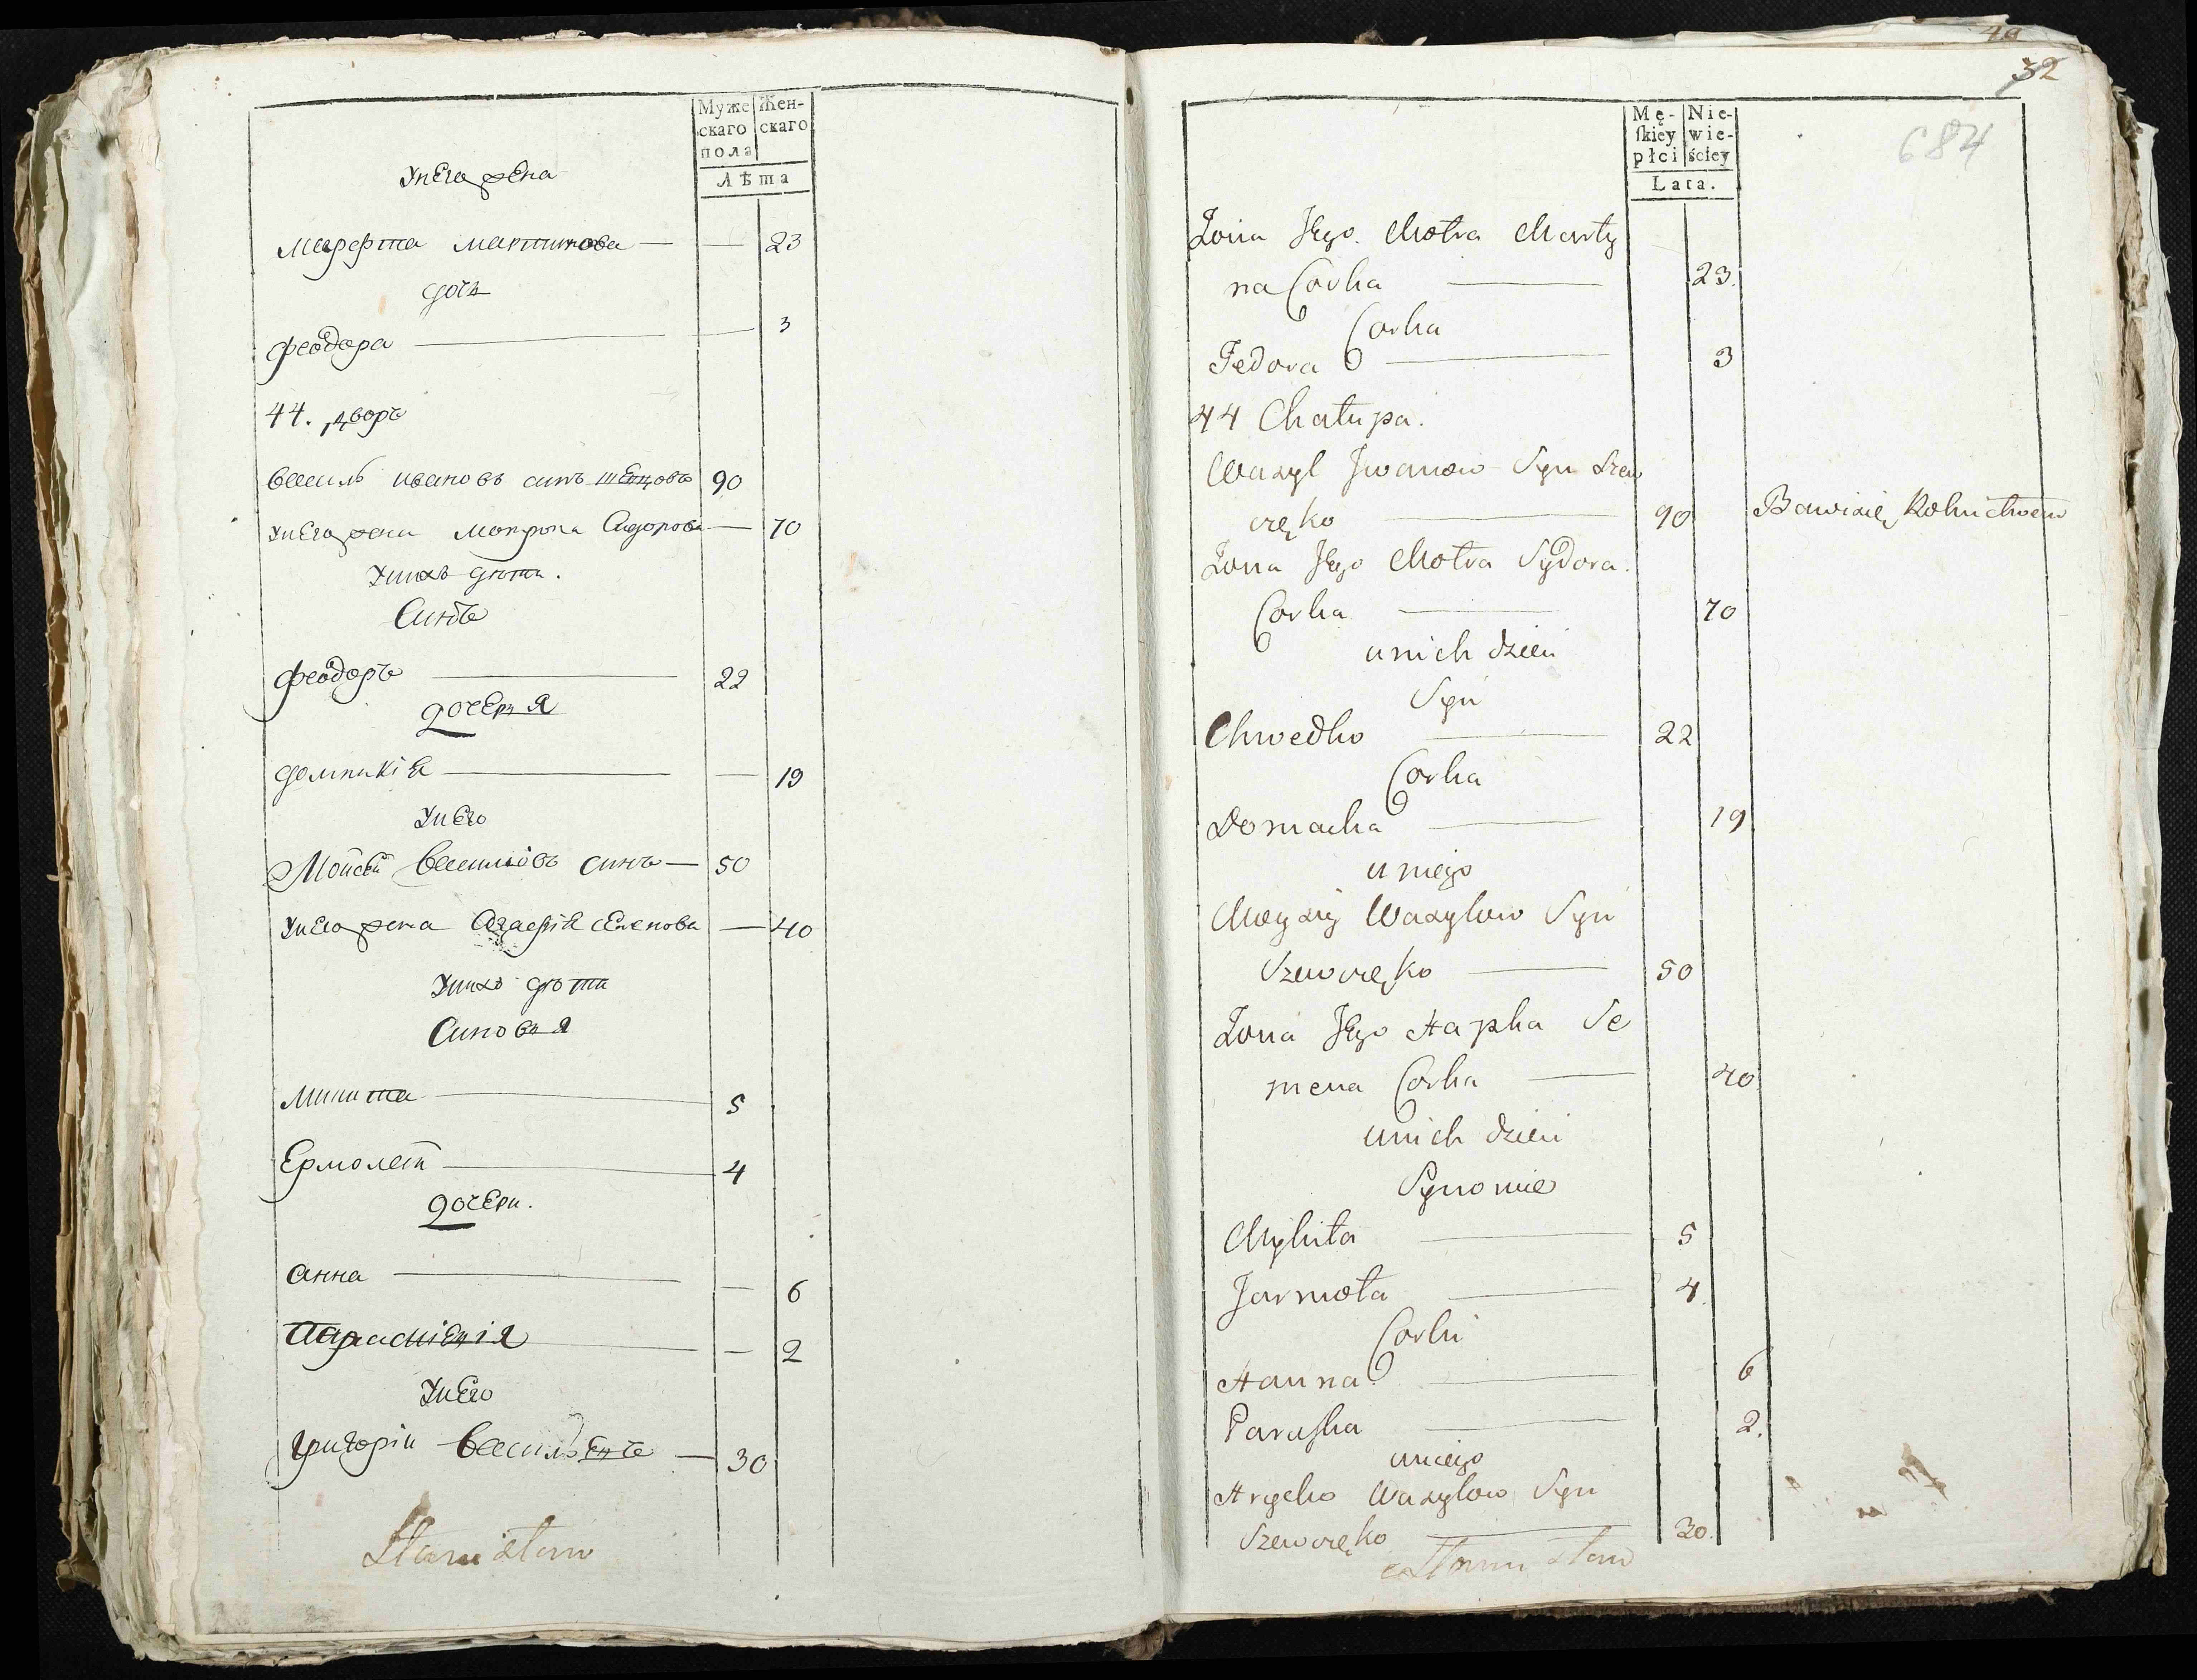 Муже
скаго
пола
Жен-
скаго
Лѣта
унего жена
Марфта Мартинова — — 23
дочь
Феодора — — 3
44. дворъ
Василь Ивановъ синъ Шевцовъ 90
унего жена Мотрона Сидорова — 70
унихъ дѣти.
Синъ
Феодоръ — 22
дочеря
Домникія — — 19
унего
Мойсей Василювъ синъ — 50
унего жена Агафія Семенова — 40
унихъ дѣти
Синовя
Микита — 5
Ермолай — 4
дочери.
Анна — — 6
Параскіевія — 2
унего
Григорій Василь — 30
Stanisław
40
32
684
Mę-
ſkiey
płci
Nie-
wie-
ściey
Lata.
Żona Jego Motra Marty
na Corka — 23.
Corka
Fedora — 3
44 Chałupa.
Wasyl Iwanow Syn Szew
częko — 90 Bawi się Rolnictwem
Żona Jego Motra Sydora.
Corka — 70
u nich dzieci
Syn
Chwedko — 22
Corka
Domacha — 19
u niego
Moyzey Wasylow Syn
Szewczęko — 50
Żona Jego Hapka Se
mena Corka — 40
u nich dzieci
Synowie
Mykita — 5
Jarmoła — 4.
Corki
Hanna — 6
Paraſka — 2.
u niego
Hryćko Wasylow Syn
Szewczęko — 30.
Stanisław